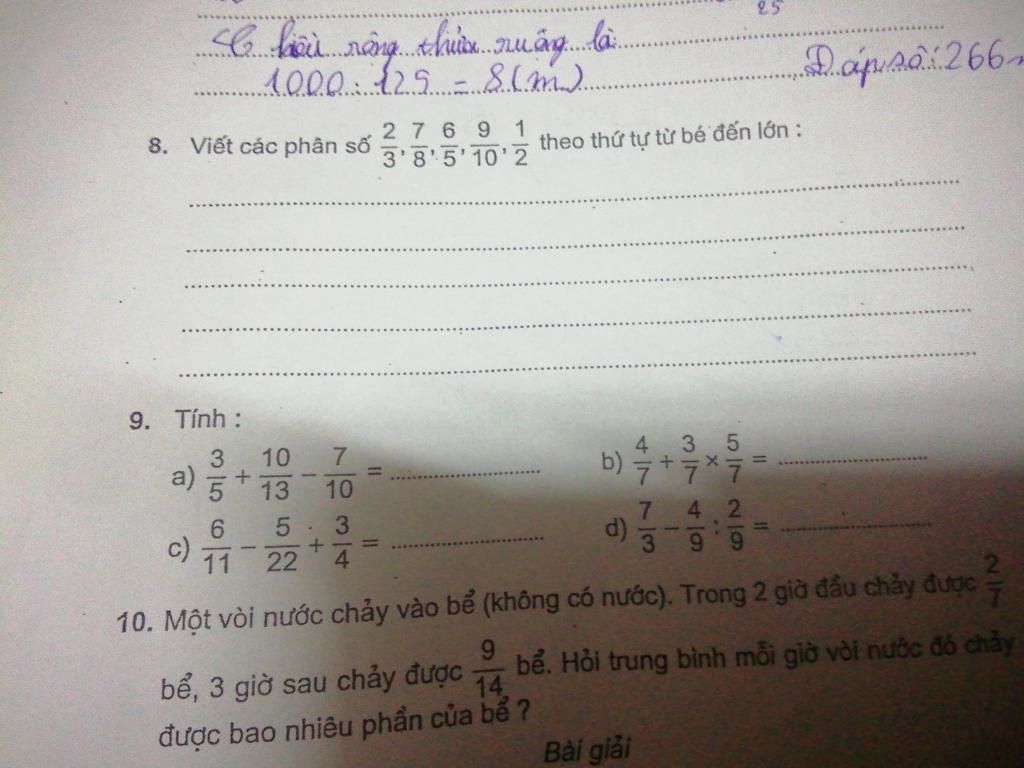 25
Chiều rộng thửa ruộng là
1000 : 125 = 8 (m)
Đáp số: 266
8. Viết các phân số 2/3, 7/8, 6/5, 9/10, 1/2 theo thứ tự từ bé đến lớn :
9. Tính :
a) 3/5 + 10/13 − 7/10 =
b) 4/7 + 3/7 × 5/7 =
c) 6/11 − 5/22 + 3/4 =
d) 7/3 − 4/9 : 2/9 =
10. Một vòi nước chảy vào bể (không có nước). Trong 2 giờ đầu chảy được 2/7
bể, 3 giờ sau chảy được 9/14 bể. Hỏi trung bình mỗi giờ vòi nước đó chảy
được bao nhiêu phần của bể ?
Bài giải